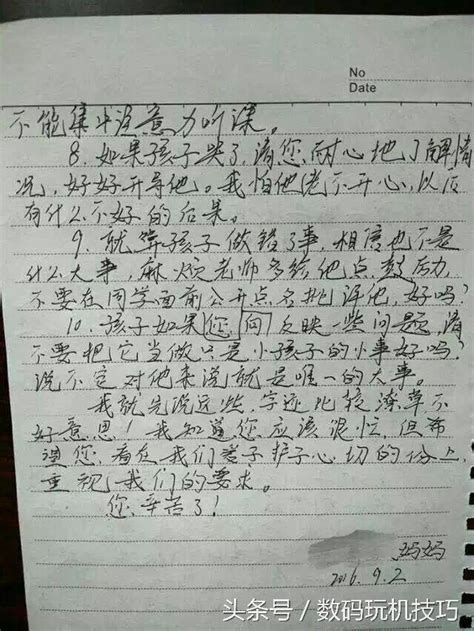 No
Date
不能集中注意力听课。
8.如果孩子哭了,请您耐心地了解情
况,好好开导他。我怕他老不开心,以后
有什么不好的后果。
9.就算孩子做错了事,相信也不是
什么大事,麻烦老师多给他点鼓励,
不要在同学面前公开点名批评他,好吗?
10.孩子如果向您反映一些问题,请
不要把它当做只是小孩子的小事好吗?
说不定对他来说就是唯一的大事。
我就先说这些,字迹比较潦草不
好意思!我知道您应该很忙,但希
望您看在我们妻子护子心切的份上,
重视我们的要求。
您辛苦了!
妈妈
2016.9.2
头条号/数码玩机技巧